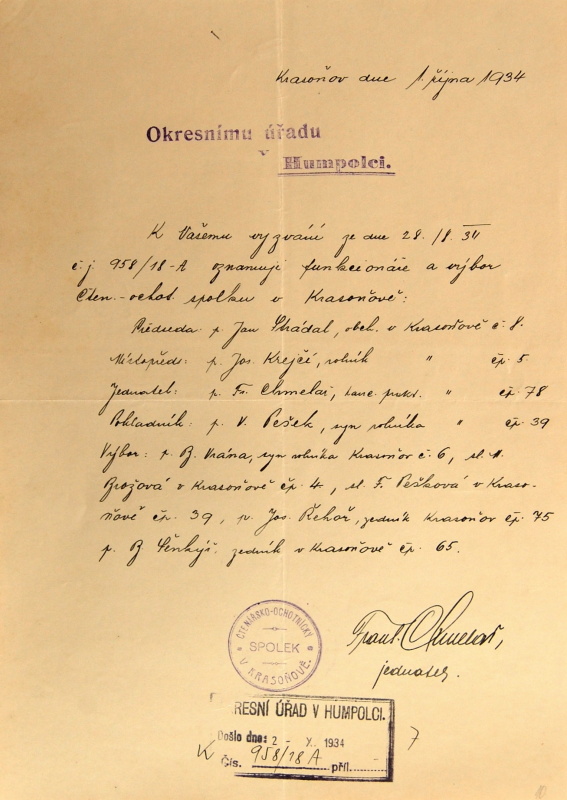 Krasoňov dne 1. října 1934
Okresnímu úřadu
v Humpolci.
K Vašemu vyzvání ze dne 28./8. 34
č.j. 958/18-A oznamuji funkcionáře a výbor
čten.-ochot. spolku v Krasoňově:
Předseda p. Jan Strádal, obch. v Krasoňově č. 8.
Místopřed: p. Jos. Krejčí, rolník " čp. 5
Jednatel: p. Fr. Chmelař, " čp. 78
Pokladník: p. V. Pešek, syn rolníka " čp. 39
Výbor: p. B. Vrána, syn rolníka Krasoňov č. 6, sl.
Brožová v Krasoňově čp. 4, sl. F. Pešková v Kraso-
ňově čp. 39, p. Jos. Řehoř, zedník Krasoňov čp. 75
p. B. zedník v Krasoňově čp. 65.
Frant. Chmelař,
jednatel.
ČTENÁŘSKO-OCHOTNICKÝ
SPOLEK
V KRASOŇOVĚ.
OKRESNÍ ÚŘAD V HUMPOLCI.
Došlo dne: 2 - X. 1934
Čís. 958/18 A příl.
7